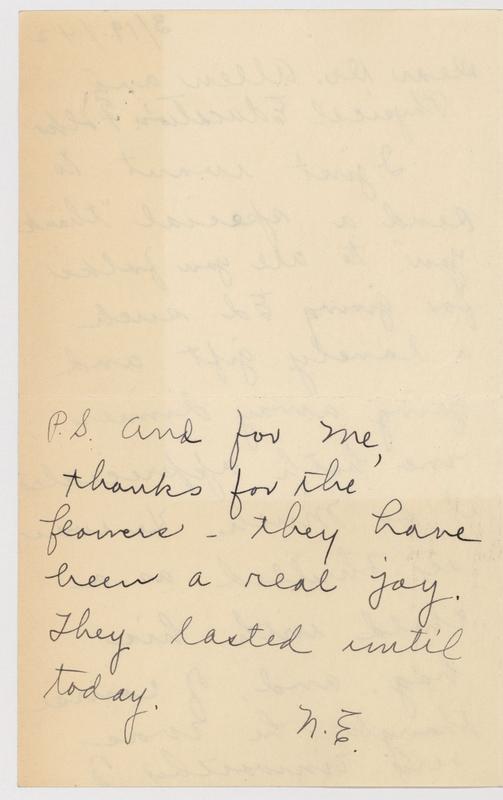 P.S. And for me,
thanks for the
flowers - they have
been a real joy.
They lasted until
today.
N.E.